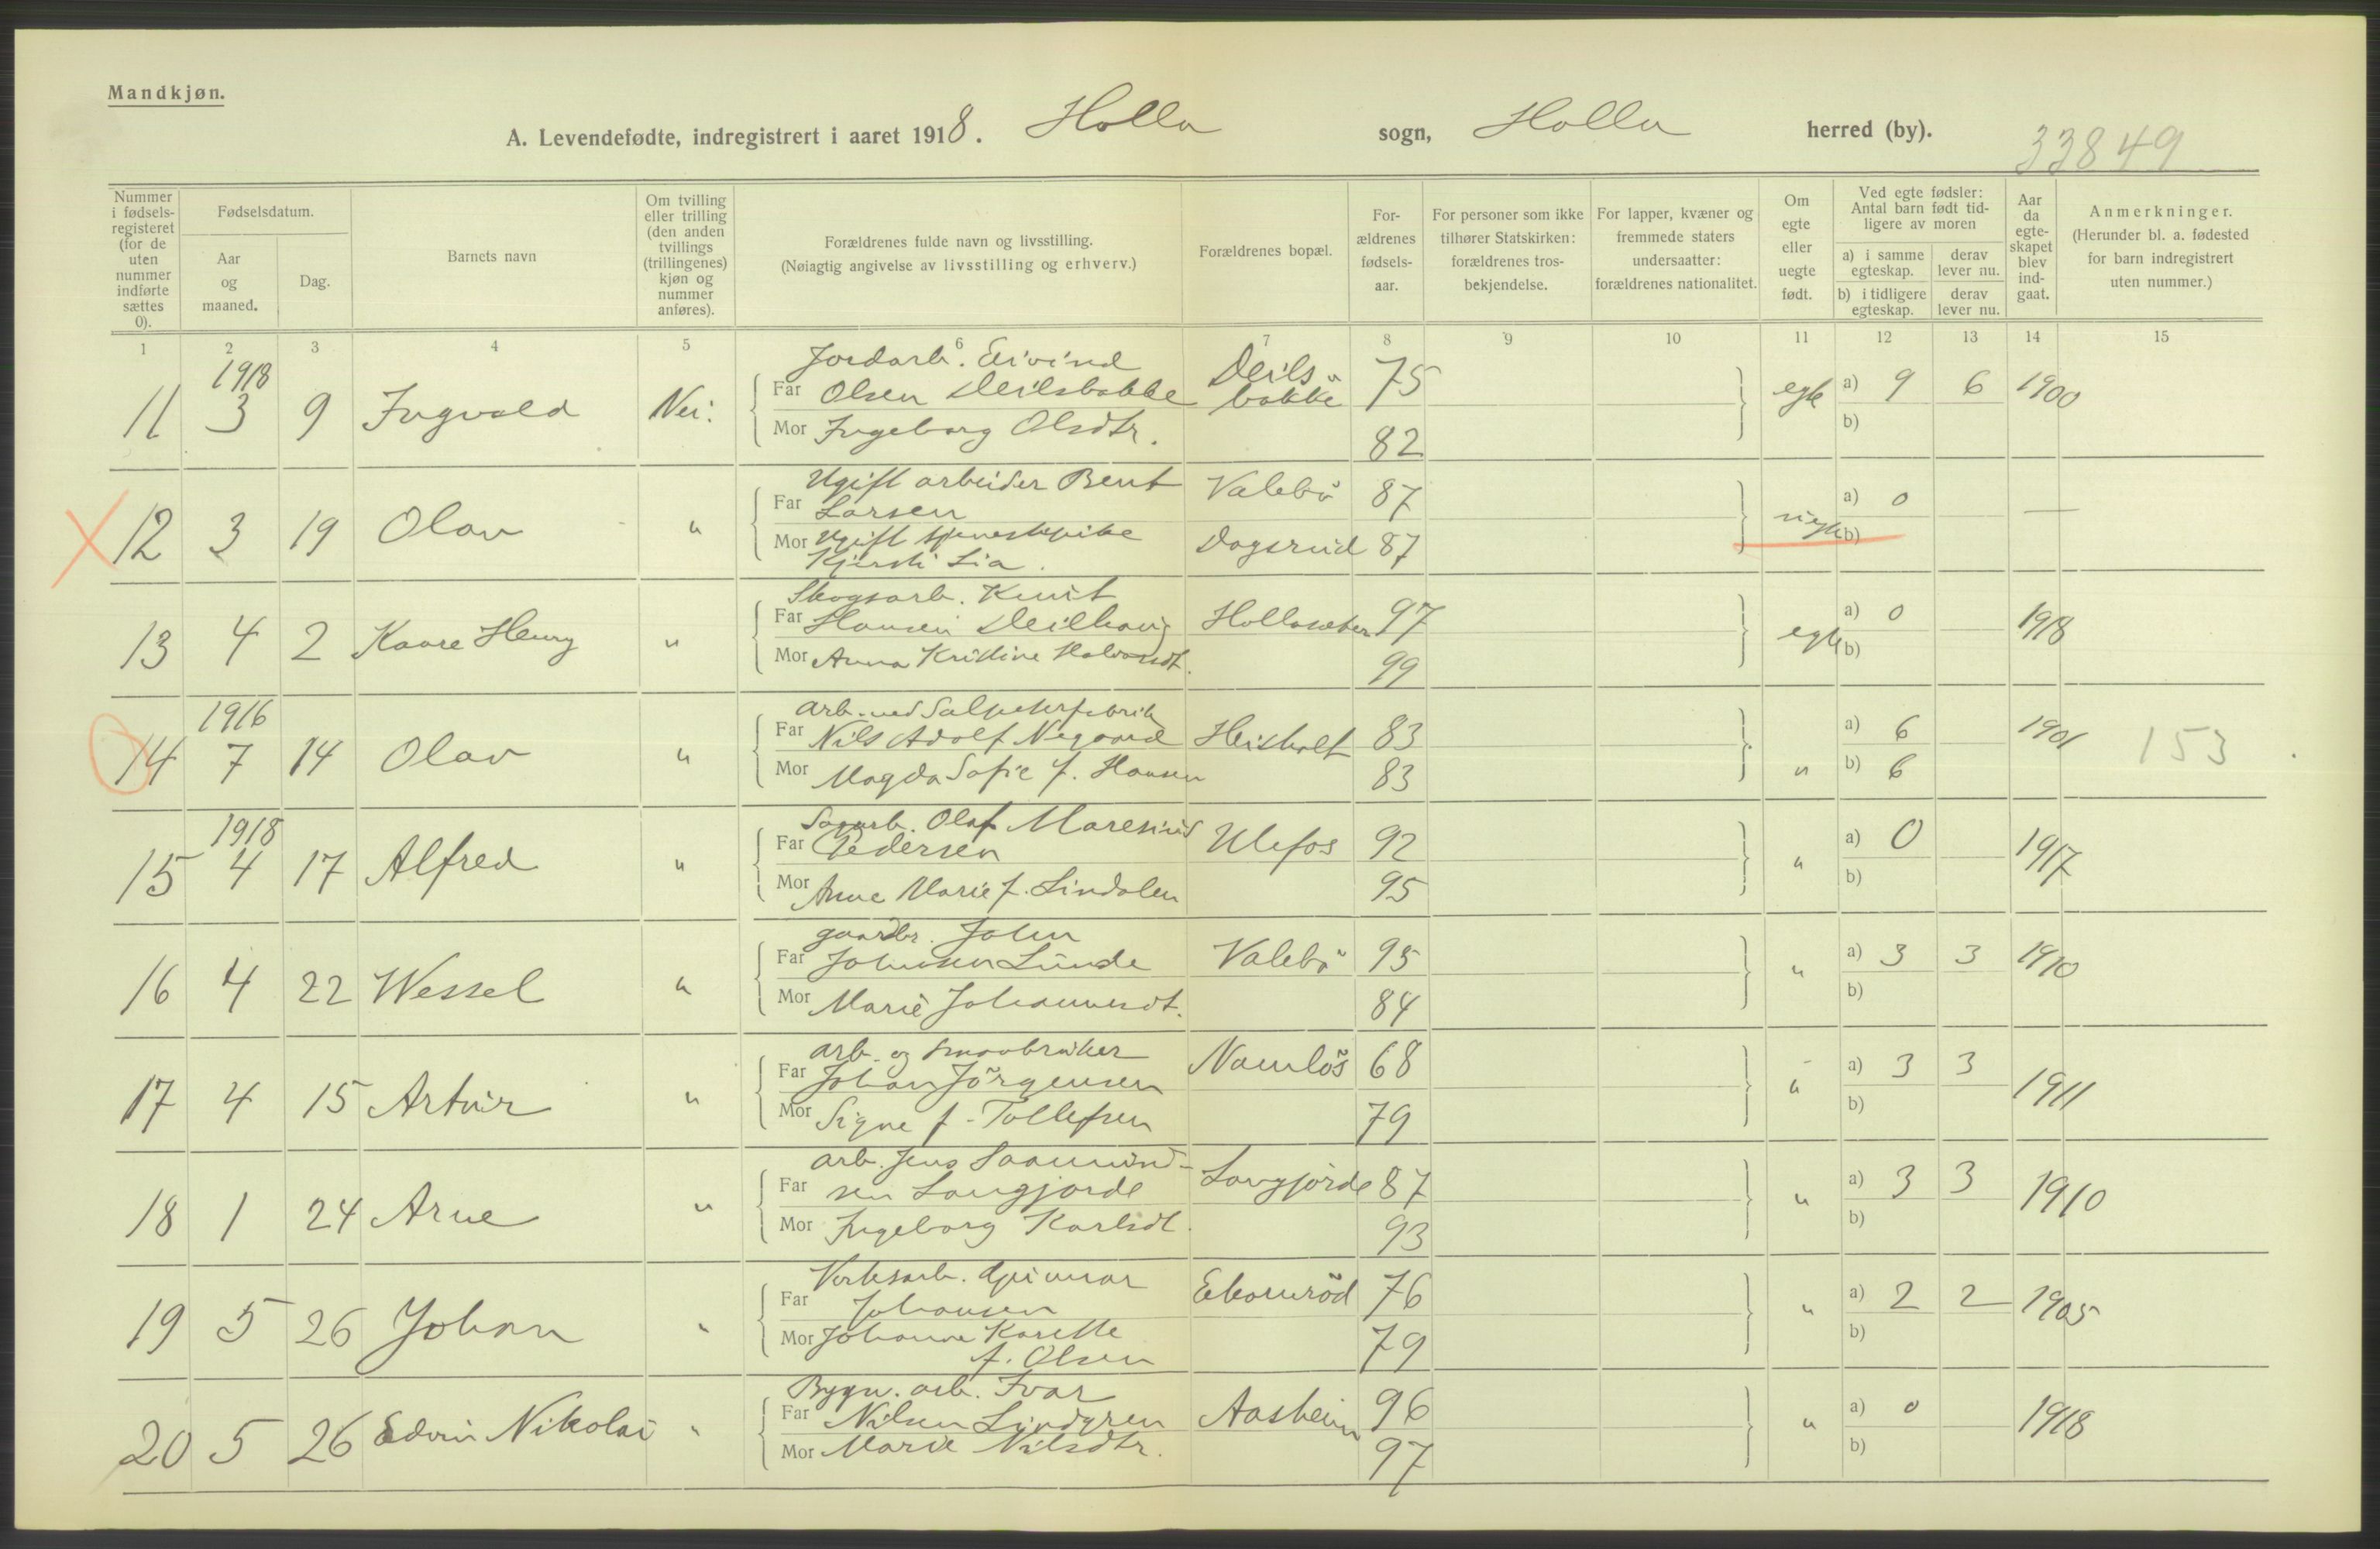 Mandkjøn.
A. Levendefødte, indregistrert i aaret 1918. Holla sogn, Holla herred (by). 33849
Nummer i fødsels-registeret (for de uten nummer indførte sættes 0).
Fødselsdatum.
Aar og maaned.
Dag.
Barnets navn
Om tvilling eller trilling (den anden tvillings (trillingenes) kjøn og nummer anføres).
Forældrenes fulde navn og livsstilling.
(Nøiagtig angivelse av livsstilling og erhverv.)
Forældrenes bopæl.
For-ældrenes fødsels-aar.
For personer som ikke tilhører Statskirken: forældrenes tros-bekjendelse.
For lapper, kvæner og fremmede staters undersaatter: forældrenes nationalitet.
Om egte eller uegte født.
Ved egte fødsler: Antal barn født tid-ligere av moren
a) i samme egteskap.
derav lever nu.
b) i tidligere egteskap.
derav lever nu.
Aar da egte-skapet blev ind-gaat.
Anmerkninger.
(Herunder bl. a. fødested for barn indregistrert uten nummer.)
1 2 3 4 5 6 7 8 9 10 11 12 13 14 15
1918 Jordarb. Eivind
11 3 9 Ingvald Nei. Far Olsen Deilsbakke Deils-bakke 75 egte a) 9 6 1900
Mor Ingeborg Olsdtr. 82 b)
Ugift arbeider Bent
12 3 19 Olav " Far Larsen Valebö 87 uegte a) 0 —
Mor Ugift tjenestepike Dagsrud 87 b)
Kjersti Lia.
Skogsarb. Knut
13 4 2 Kaare Henry " Far Hansen Deilhaug Hollasæter 97 egte a) 0 1918
Mor Anna Kristine Halvorsdt. 99 b)
1916 arb. ved Salpeterfabrik
14 7 14 Olav " Far Nils Adolf Negaard Heisholt 83 a) 6 1901 153
Mor Magda Sofie f. Hansen 83 " b) 6
1918 Sagarb. Olaf
15 4 17 Alfred " Far Pedersen Ulefos 92 " a) 0 1917
Mor Anne Marie f. Lindalen 95 b)
gaardbr. John
16 4 22 Wessel " Far Johnsen Lunde Valebö 95 " a) 3 3 1910
Mor Marie Johannesdt. 84 b)
arb. og smaabruker
17 4 15 Artur " Far Johan Jörgensen Namlös 68 " a) 3 3 1911
Mor Signe f. Tollefsen 79 b)
arb. Jens Saamund-
18 1 24 Arne " Far sen Langjorde Langjorde 87 " a) 3 3 1910
Mor Ingeborg Karlsdt. 93 b)
Verksarb. Gunnar
19 5 26 Johan " Far Johansen Ekornröd 76 " a) 2 2 1905
Mor Johanne Karette 79 b)
f. Olsen
Bygn. arb. Ivar
20 5 26 Edvin Nikolai " Far Nilsen Lindgren Aasheim 96 " a) 0 1918
Mor Marie Nilsdtr. 97 b)